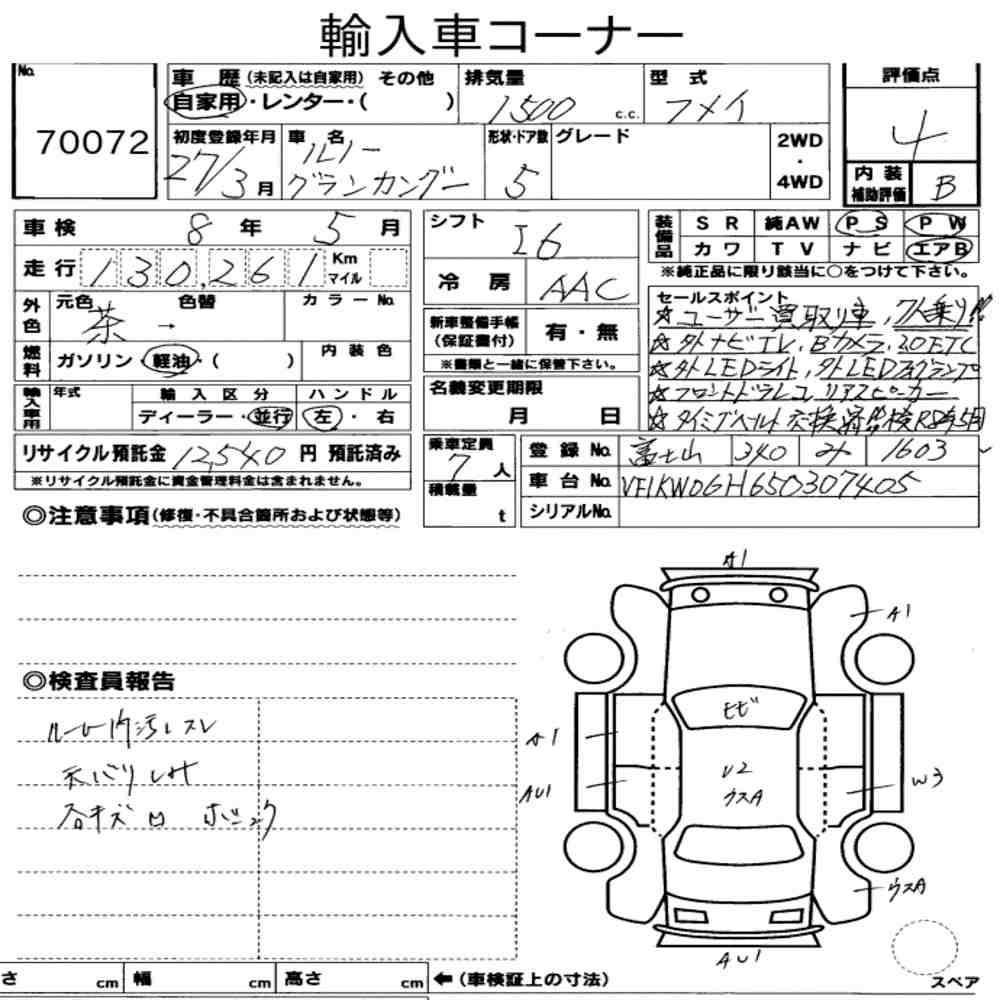 輸入車コーナー
No.
70072
車歴(未記入は自家用) その他
自家用・レンター・( )
排気量
1500 c.c.
型式
フメイ
評価点
4
初度登録年月
27/3月
車名
ルノー
グランカングー
形状・ドア数
5
グレード
2WD
・
4WD
内装
補助評価
B
車検 8年 5月
走行 130,261 Km
マイル
シフト
I6
冷房 AAC
装備品
SR 純AW PS PW
カワ TV ナビ エアB
※純正品に限り該当に○をつけて下さい。
外色
元色 色替 カラーNo.
茶 →
燃料
ガソリン・軽油・( )
内装色
新車整備手帳
(保証書付)
有・無
※書類と一緒に保管下さい。
セールスポイント
☆ユーザー買取り車、7人乗り!!
☆外ナビTV、Bカメラ、2.0ETC
☆外LEDライト、外LEDフォグランプ
☆フロントドラレコ リアスピーカー
☆タイミングベルト交換済!!検R8年5月
輸入車用
年式 輸入区分 ハンドル
ディーラー・並行 左・右
名義変更期限
月 日
リサイクル預託金 12,540 円 預託済み
※リサイクル預託金に資金管理料金は含まれません。
乗車定員
7人
積載量
t
登録No. 富士山 340 み 1603
車台No. VF1KW0GH650307405
シリアルNo.
◎注意事項(修復・不具合箇所および状態等)
◎検査員報告
ルーム内汚レスレ
天バリシミ
各キズ凹 ボデック
A1
A1
ヒビ
A1
AU1
U2
ウスA
W3
ウスA
AU1
スペア
さ cm 幅 cm 高さ cm ←(車検証上の寸法)